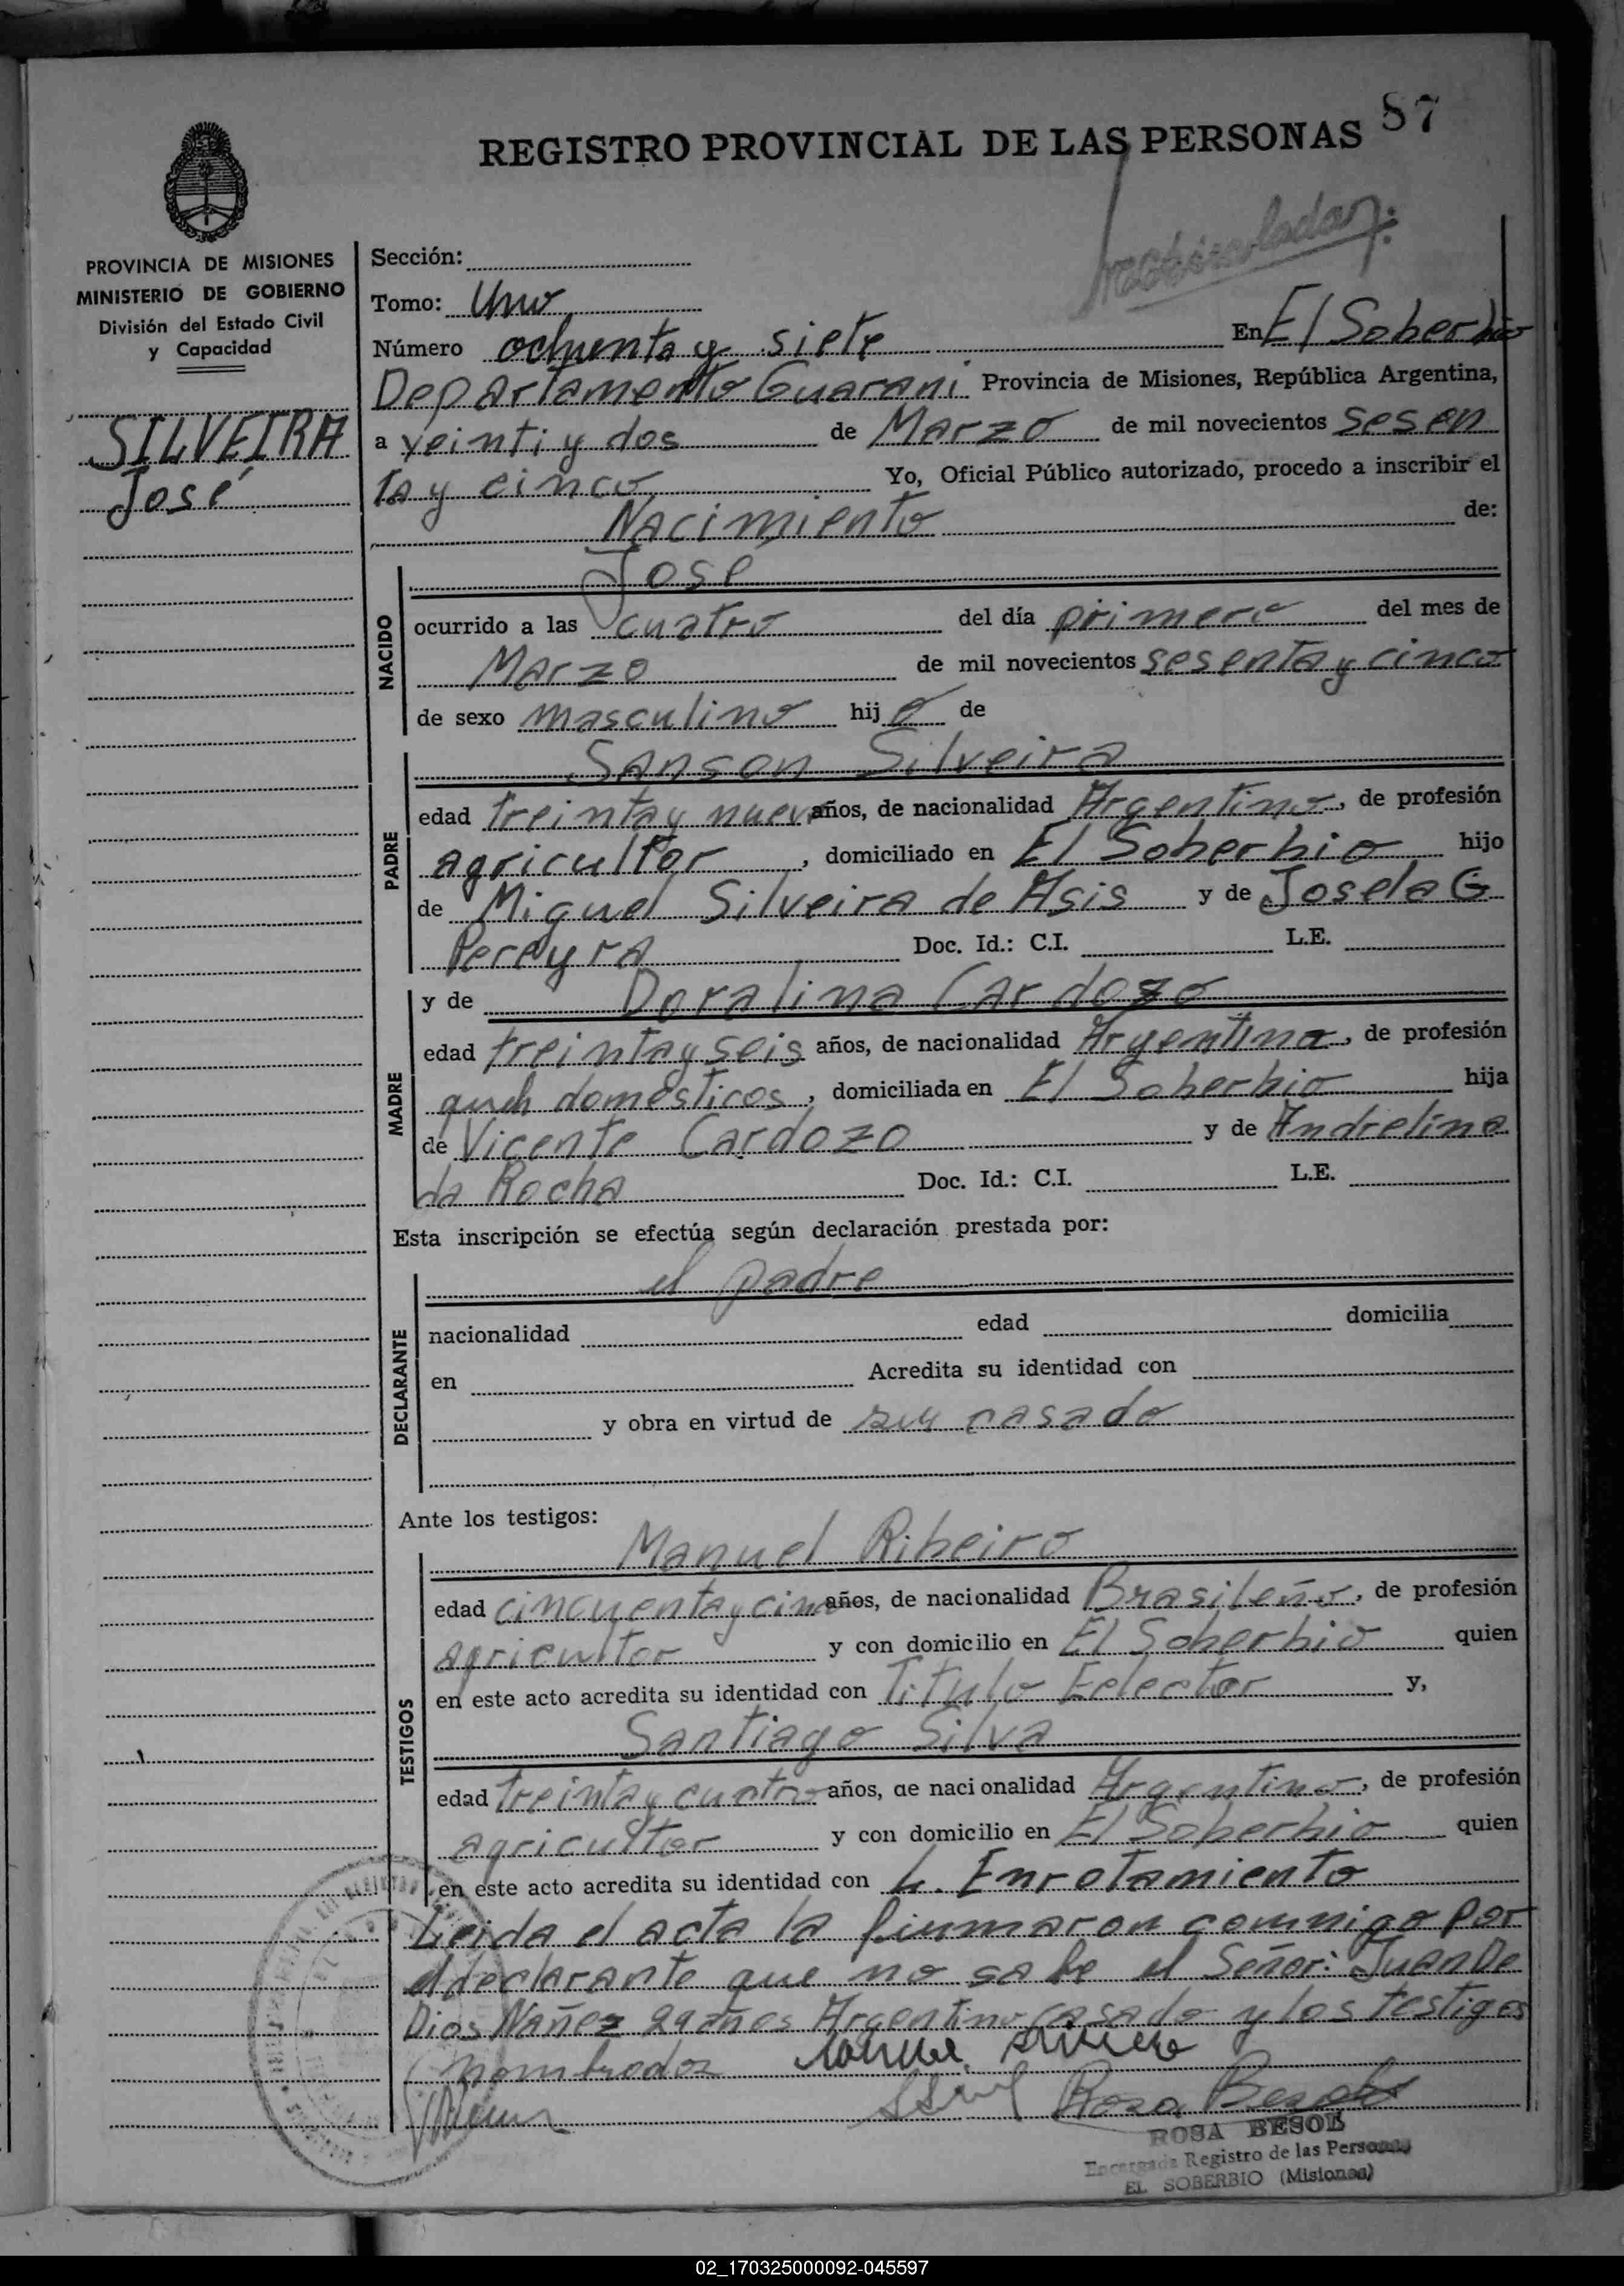 87
REGISTRO PROVINCIAL DE LAS PERSONAS
PROVINCIA DE MISIONES
MINISTERIO DE GOBIERNO
División del Estado Civil
y Capacidad
SILVEIRA
José
Sección:
Tomo: Uno
Número ochenta y siete En El Soberbio
Departamento Guarani Provincia de Misiones, República Argentina,
a veinti y dos de Marzo de mil novecientos sesen
ta y cinco Yo, Oficial Público autorizado, procedo a inscribir el
Nacimiento de:
NACIDO
José
ocurrido a las cuatro del día primero del mes de
Marzo de mil novecientos sesenta y cinco
de sexo masculino hijo de
PADRE
Sanson Silveira
edad treinta y nueve años, de nacionalidad Argentino, de profesión
agricultor, domiciliado en El Soberbio hijo
de Miguel Silveira de Asis y de Josefa G
Pereyra Doc. Id.: C.I. L.E.
MADRE
y de Doralina Cardozo
edad treinta y seis años, de nacionalidad Argentina, de profesión
domésticos, domiciliada en El Soberbio hija
de Vicente Cardozo y de Andrelina
da Rocha Doc. Id.: C.I. L.E.
Esta inscripción se efectúa según declaración prestada por:
DECLARANTE
el padre
nacionalidad edad domicilia
en Acredita su identidad con
y obra en virtud de ser casado
Ante los testigos:
TESTIGOS
Manuel Ribeiro
edad cincuenta y cinco años, de nacionalidad Brasileño, de profesión
agricultor y con domicilio en El Soberbio quien
en este acto acredita su identidad con Titulo Eelector y,
Santiago Silva
edad treinta y cuatro años, de nacionalidad Argentino, de profesión
agricultor y con domicilio en El Soberbio quien
en este acto acredita su identidad con L. Enrolamiento
Leida el acta la firmaron conmigo por
el declarante que no sabe el Señor: Juan De
Dios Núñez 29 años Argentino casado y los testigos
nombrados
Rosa Besol
ROSA BESOL
Encargada Registro de las Personas
EL SOBERBIO (Misiones)
02_170325000092-045597